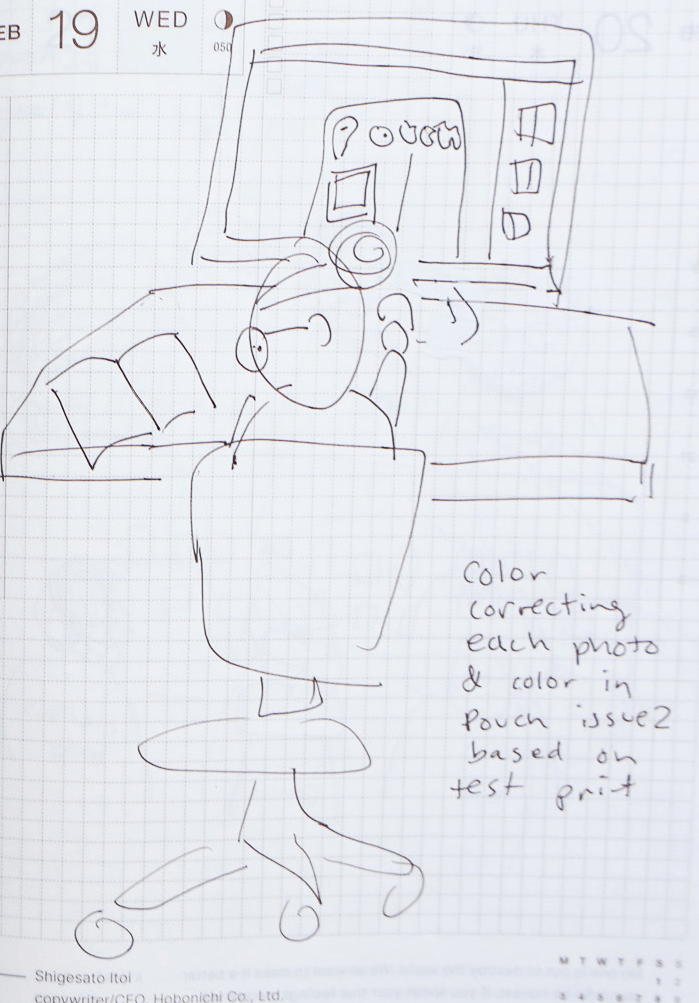 EB 19 WED
水 050
POUCH
Color
correcting
each photo
& color in
Pouch issue2
based on
test print
Shigesato Itoi
copywriter/CEO, Hobonichi Co., Ltd.
M T W T F S S
1 2
3 4 5 6 7 8